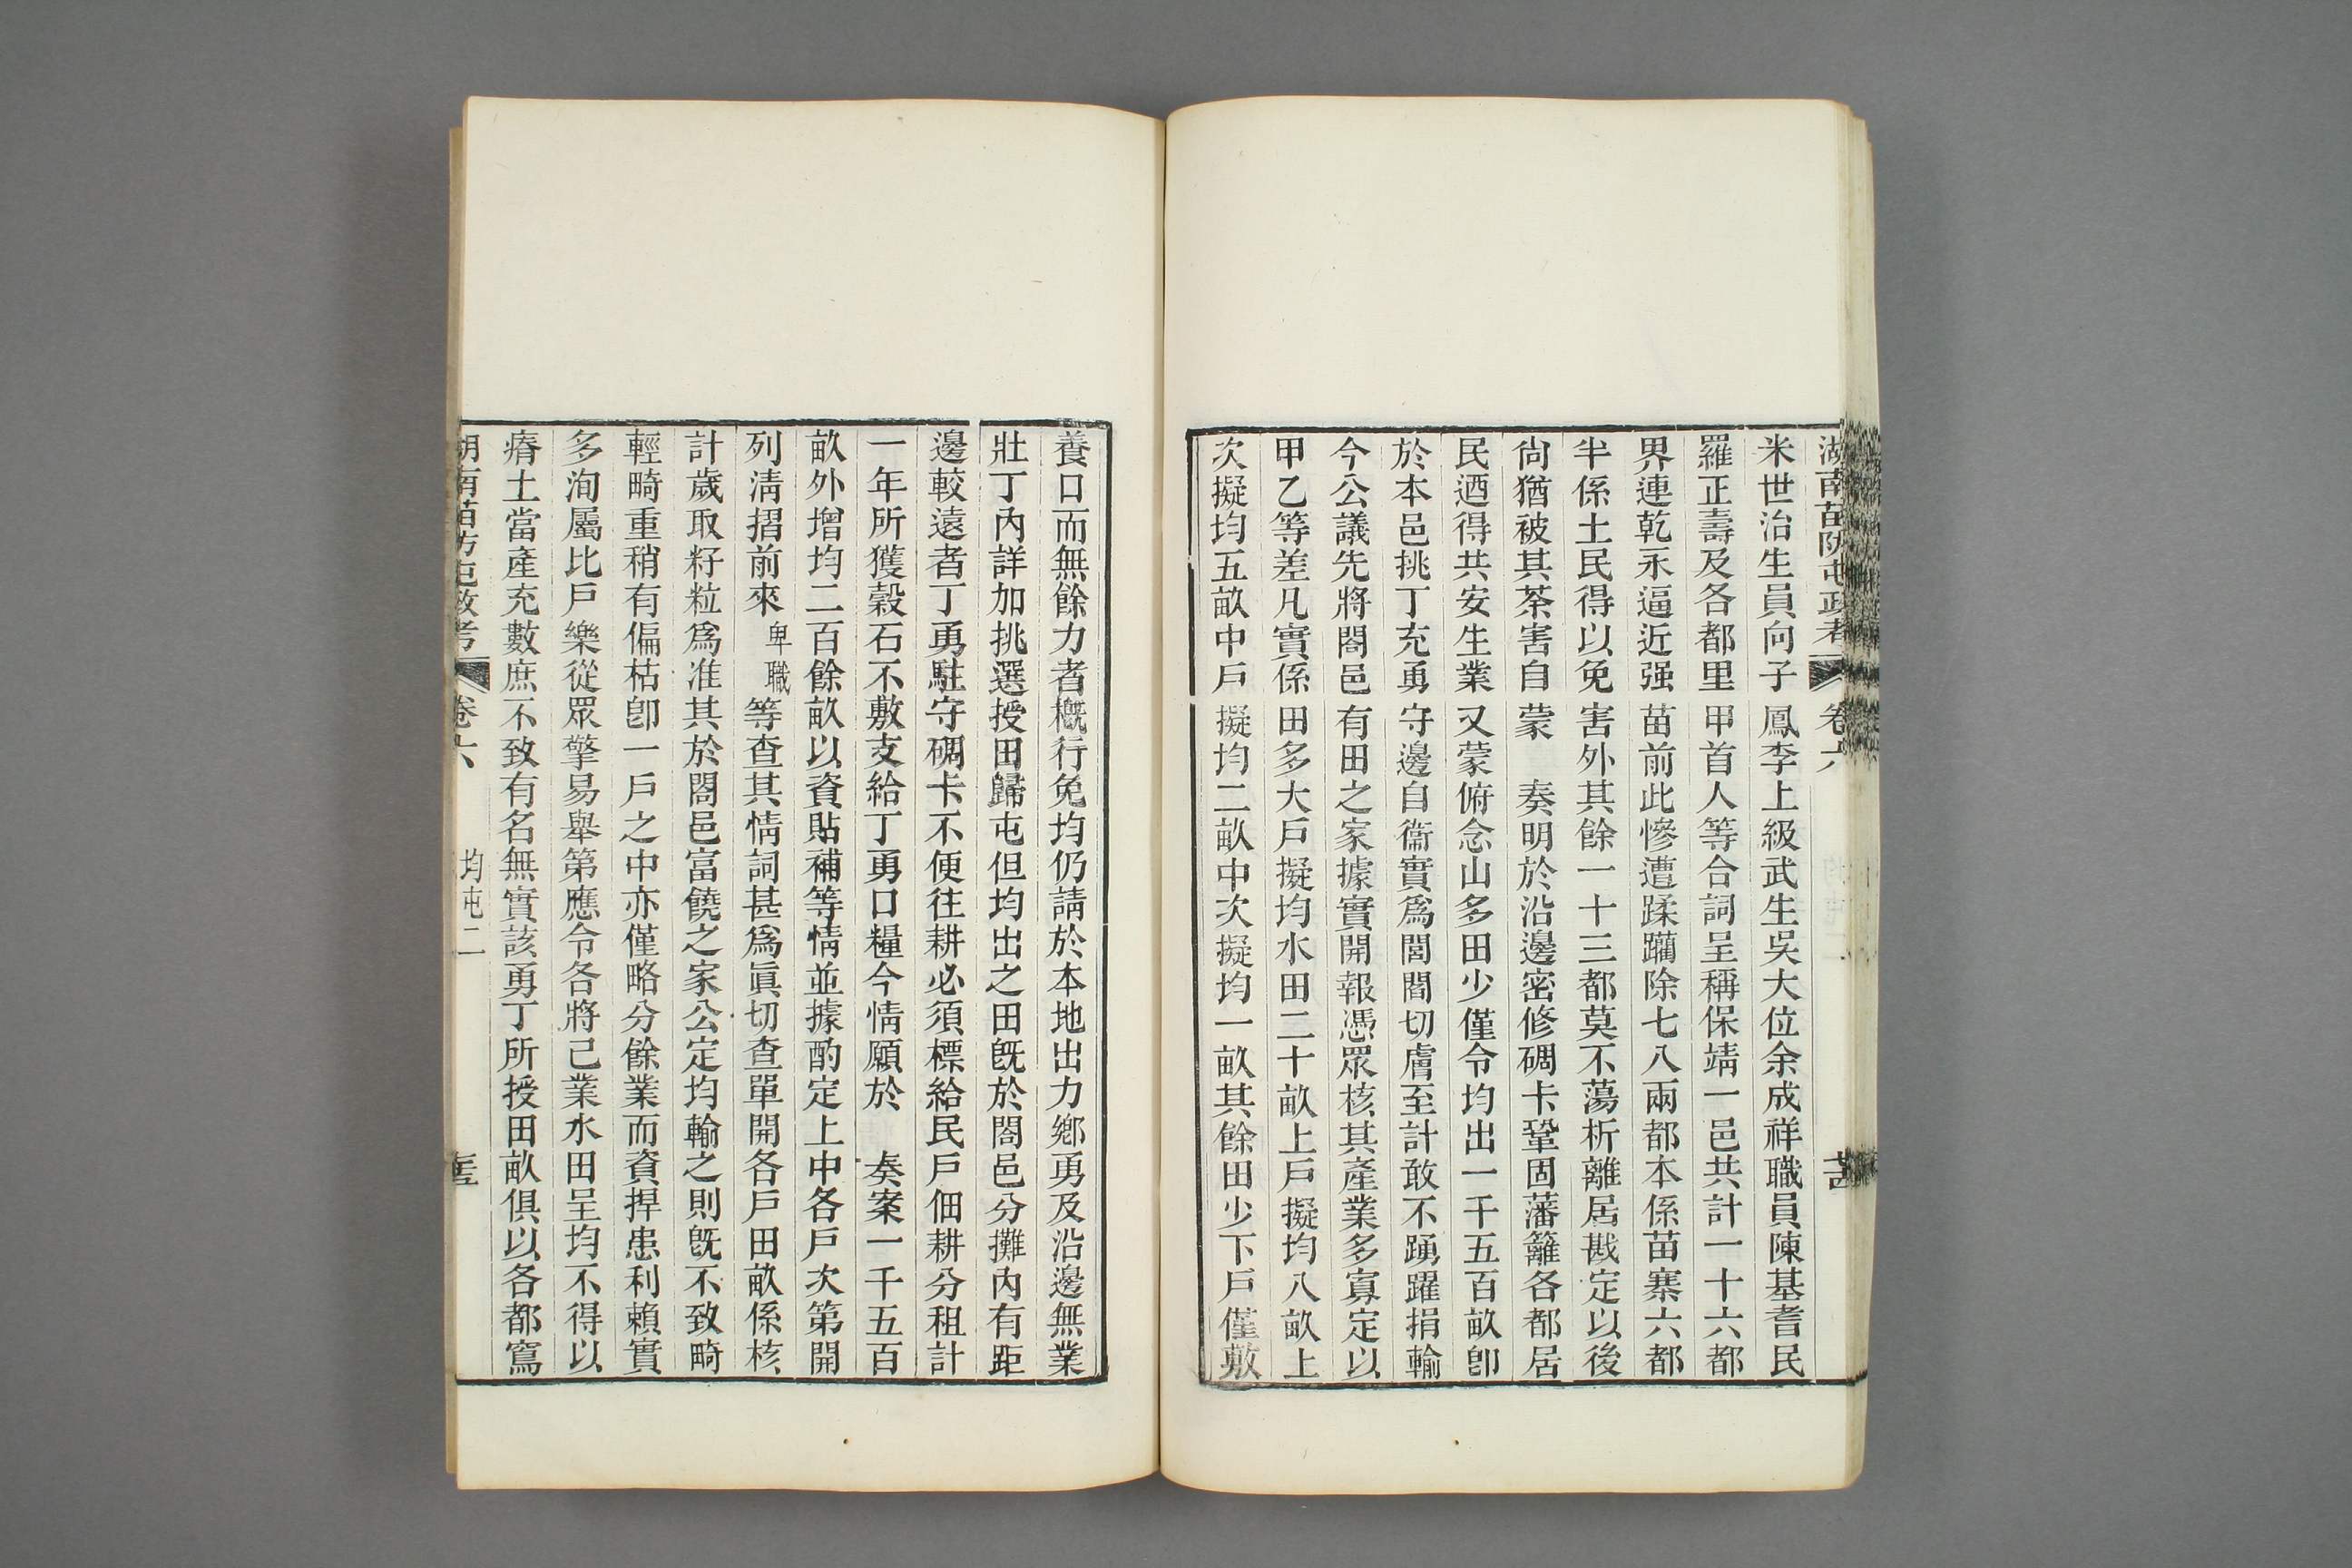 湖南苗防屯政考 卷六 
米世治生員向子鳳李上級武生吳大位余成祥職員陳基耆民
羅正壽及各都里甲首人等合詞呈稱保靖一邑共計一十六都
界連乾永逼近强苗前此慘遭蹂躪除七八兩都本係苗寨六都
半係土民得以免害外其餘一十三都莫不蕩析離居戡定以後
尙猶被其荼害自蒙 奏明於沿邊密修碉卡鞏固藩籬各都居
民迺得共安生業又蒙俯念山多田少僅令均出一千五百畝卽
於本邑挑丁充勇守邊自衞實爲閭閻切膚至計敢不踴躍捐輸
今公議先將閤邑有田之家據實開報憑眾核其產業多寡定以
甲乙等差凡實係田多大戶擬均水田二十畝上戶擬均八畝上
次擬均五畝中戶擬均二畝中次擬均一畝其餘田少下戶僅敷
養口而無餘力者概行免均仍請於本地出力鄉勇及沿邊無業
壯丁內詳加挑選授田歸屯但均出之田旣於閤邑分攤內有距
邊較遠者丁勇駐守碉卡不便往耕必須標給民戶佃耕分租計
一年所獲穀石不敷支給丁勇口糧今情願於 奏案一千五百
畝外增均二百餘畝以資貼補等情並據酌定上中各戶次第開
列淸摺前來卑職等查其情詞甚爲眞切查單開各戶田畝係核
計歲取籽粒爲准其於閤邑富饒之家公定均輸之則旣不致畸
輕畸重稍有偏枯卽一戶之中亦僅略分餘業而資捍患利賴實
多洵屬比戶樂從眾擎易舉第應令各將己業水田呈均不得以
瘠土當產充數庶不致有名無實該勇丁所授田畝俱以各都窵
湖南苗防屯政考 卷六 均屯二